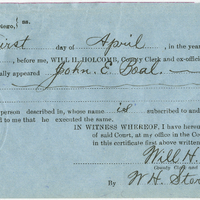 ss.
First day of April, in the year
, before me, WILL H. HOLCOMB, County Clerk and ex-offic
ally appeared John. E. Boal.
person described in, whose name is subscribed to and
d to me that he executed the same.
IN WITNESS WHEREOF, I have hereu
of said Court, at my office in the Co
in this certificate first above written
Will H.
County Clerk and
By W. H. Ster